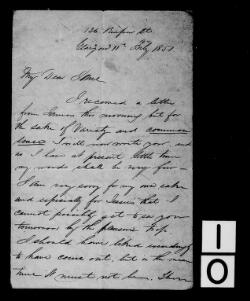 136 St
11th July 1851
My Dear
I received a letter
from this morning but for
the sake of Variety and common
sense I will now write you and
as I have at present little time
my words shall be very few –
I am very sorry for my own sake
and especially for that I
cannot possibly get to see you
tomorrow by the
I should have liked exceedingly
to have come out, but in the mean
time it must not be.
10